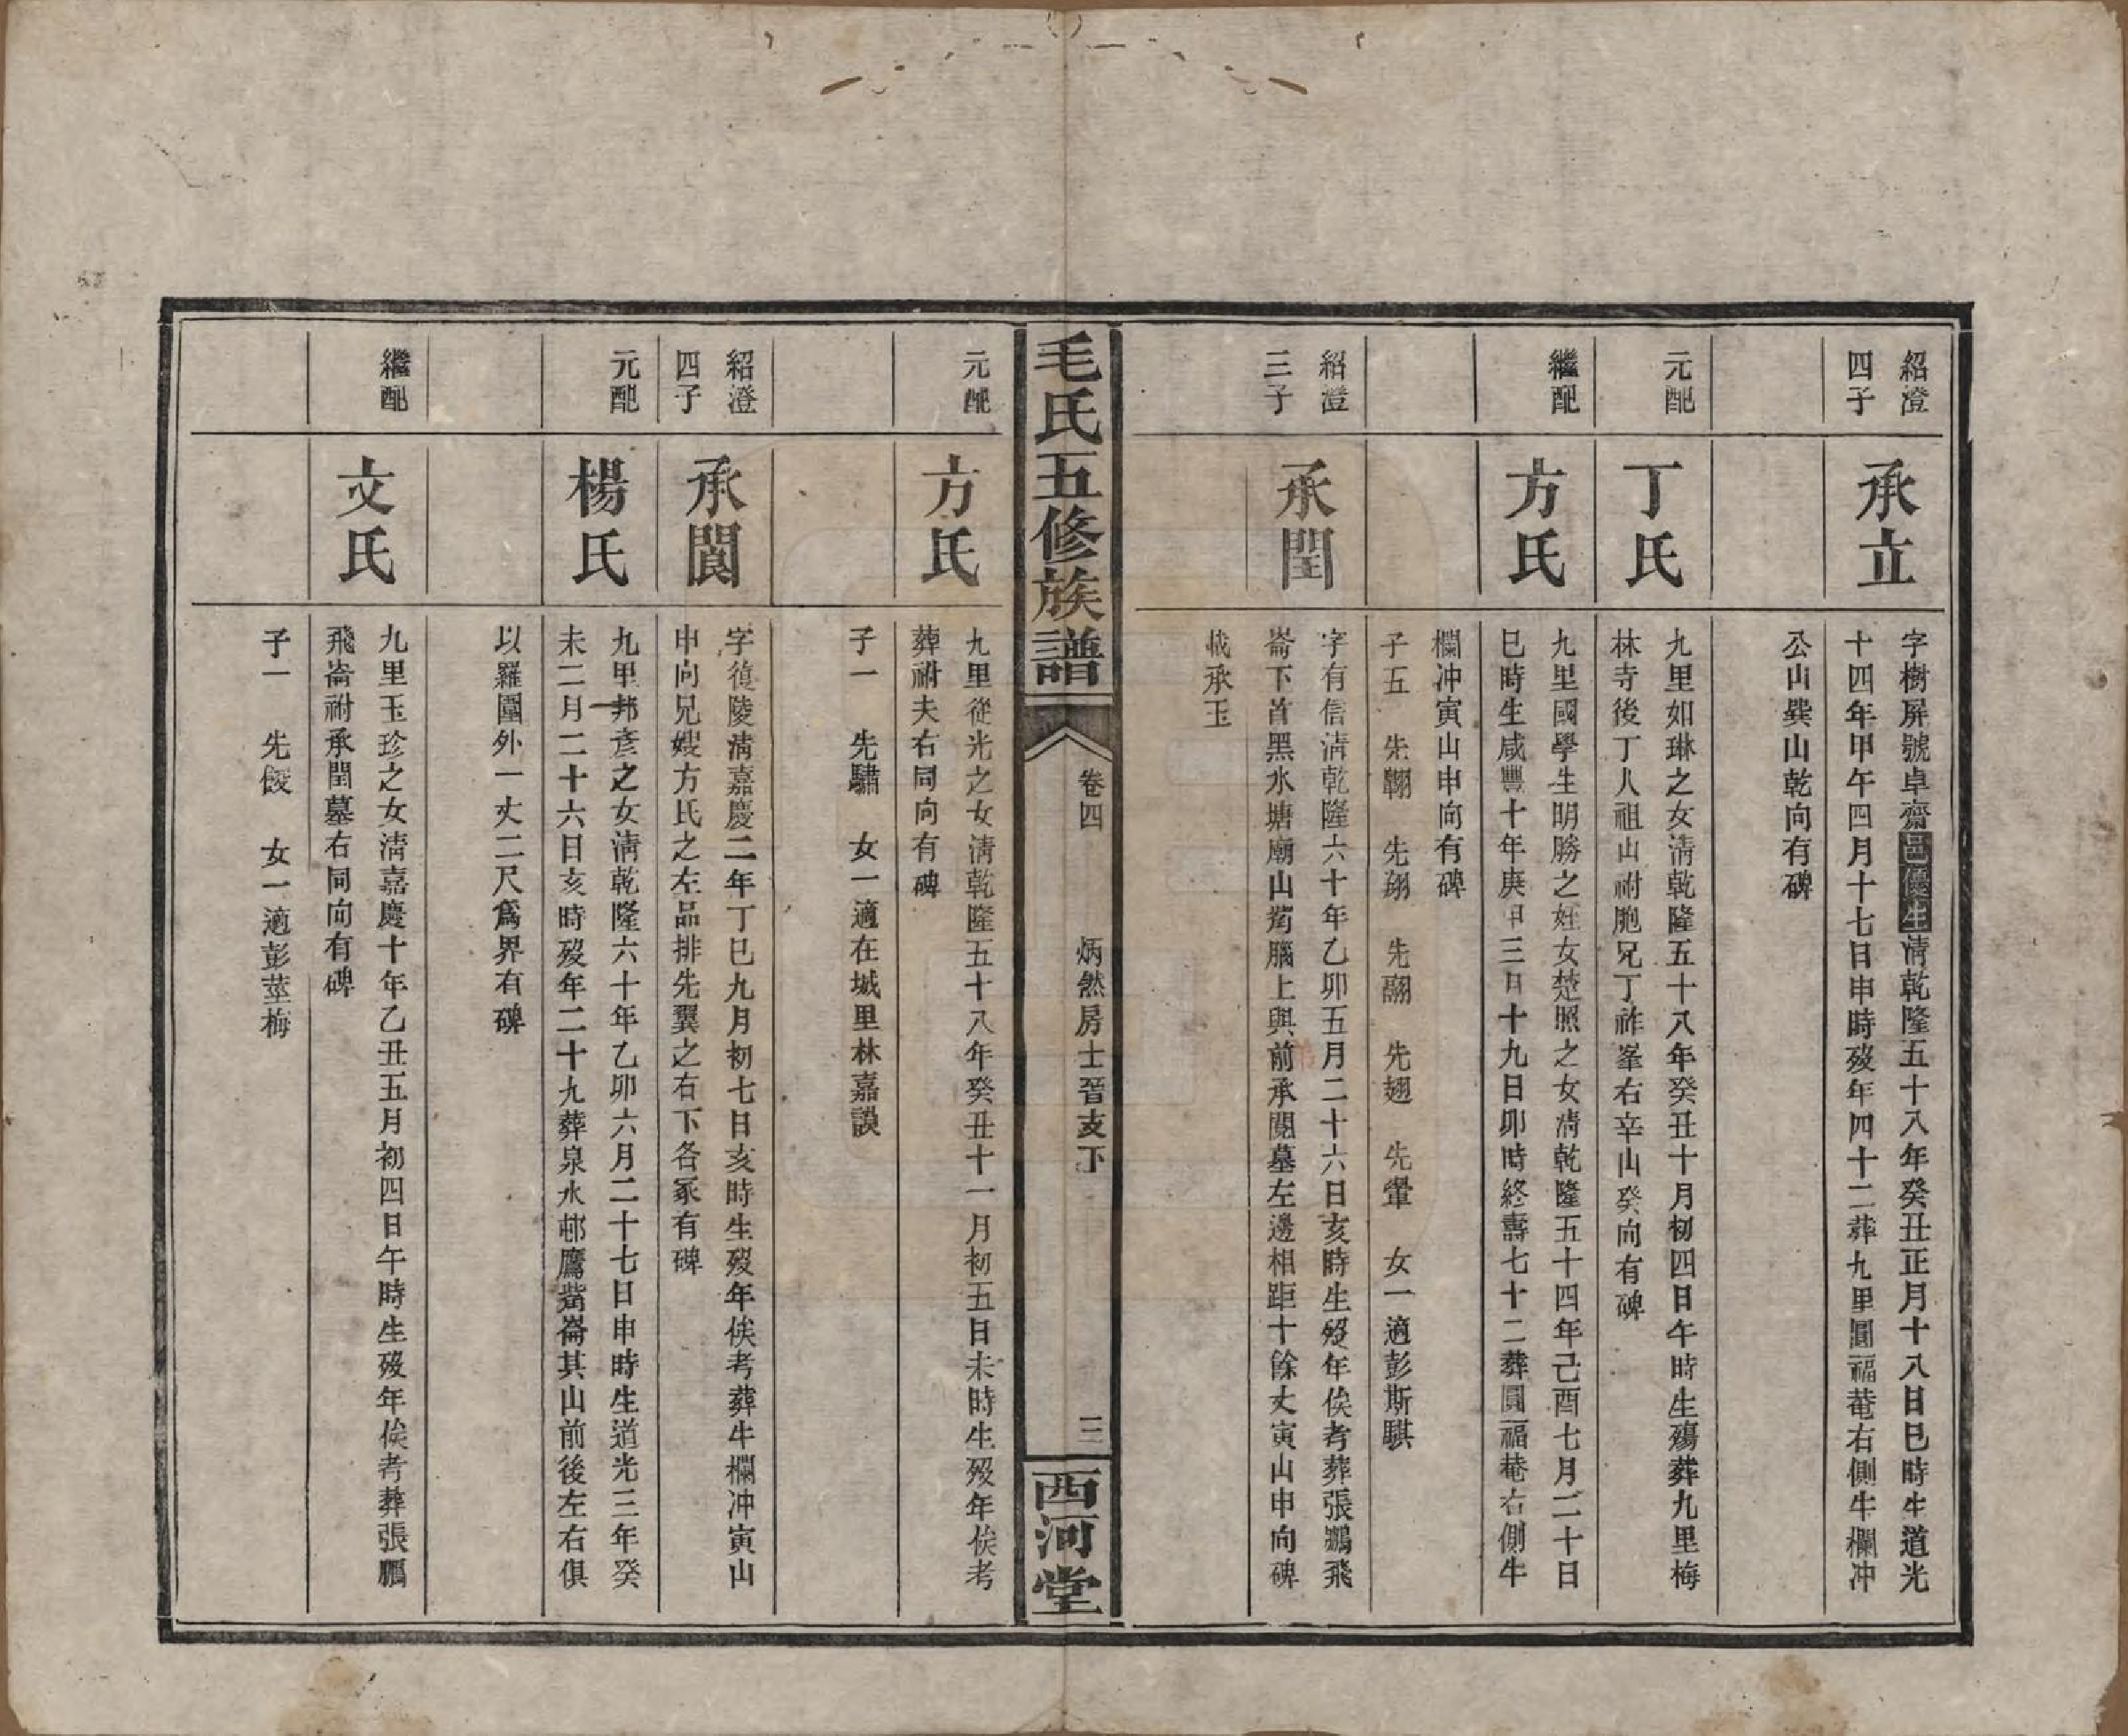 紹澄
四子
承立
字樹屏號卓齋邑優生清乾隆五十八年癸丑正月十八日巳時生道光
十四年甲午四月十七日申時歿年四十二葬九里圓福菴右側牛欄冲
公山巽山乾向有碑
元配
丁氏
九里如琳之女清乾隆五十八年癸丑十月初四日午時生殤葬九里梅
林寺後丁人祖山祔胞兄丁祚峯右辛山癸向有碑
繼配
方氏
九里國學生明勝之姪女楚照之女清乾隆五十四年己酉七月二十日
巳時生咸豐十年庚申三月十九日卯時終壽七十二葬圓福菴右側牛
欄冲寅山申向有碑
子五 先翱 先翔 先翮 先翅 先翬 女一適彭斯騏
紹澄
三子
承閏
字有信清乾隆六十年乙卯五月二十六日亥時生歿年俟考葬張鵬飛
崙下首黑水塘廟山蜀腦上與前承閱墓左邊相距十餘丈寅山申向碑
載承玉
毛氏五修族譜
卷四
炳然房士晉支下
三
西河堂
元配
方氏
九里從光之女清乾隆五十八年癸丑十一月初五日未時生歿年俟考
葬祔夫右同向有碑
子一 先驌 女一適在城里林嘉謨
紹澄
四子
承閬
字復陵清嘉慶二年丁巳九月初七日亥時生歿年俟考葬牛欄冲寅山
申向兄嫂方氏之左品排先翼之右下各冢有碑
元配
楊氏
九里邦彥之女清乾隆六十年乙卯六月二十七日申時生道光三年癸
未二月二十六日亥時歿年二十九葬泉水邨鷹嘴崙其山前後左右俱
以羅圍外一丈二尺爲界有碑
繼配
文氏
九里玉珍之女清嘉慶十年乙丑五月初四日午時生歿年俟考葬張鵬
飛崙祔承閏墓右同向有碑
子一 先 女一適彭莖梅